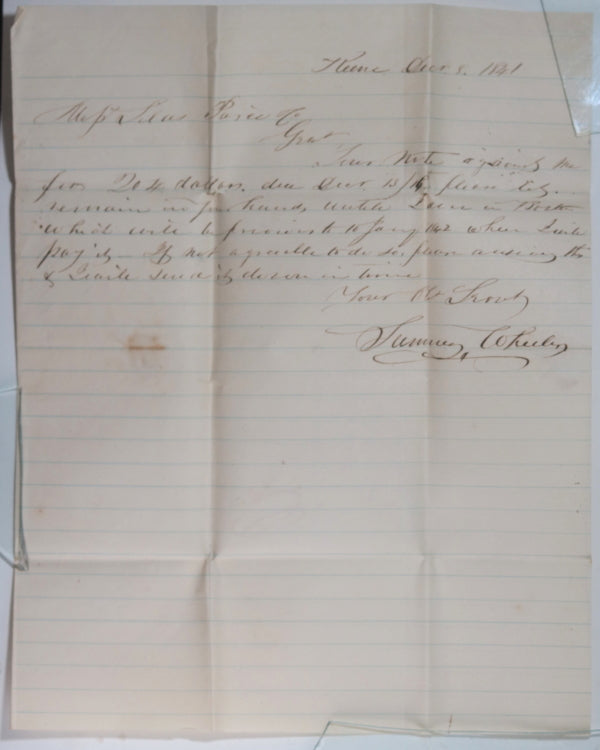 Keene Decr 8. 1841
Messrs Silas Peirce Co
Gent
Your Note against me
for 204 dollars. due Decr 13/16 please let
remain in your hands untill I am in Boston
which will be previous to Jany 1842 when I will
pay it. If not agreeable to do so please answer this
& I will send it down in time
Your Obt Servt
Sumner Wheeler